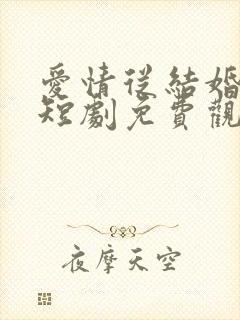 愛情從結婚
短劇免費觀
夜摩天空